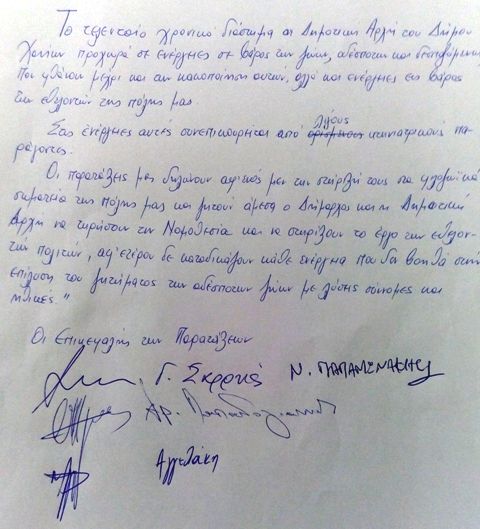 Το τελευταίο χρονικό διάστημα η Δημοτική Αρχή του Δήμου
Χανίων προχωρά σε ενέργειες σε βάρος των ζώων, αδέσποτων και δεσποζόμενων
που φθάνουν μέχρι και την κακοποίηση αυτών, αλλά και ενέργειες εις βάρος
των εθελοντών της πόλης μας.
λίγους
Στις ενέργειες αυτές συνεπικουρείται από ορισμένους κτηνιατρικούς πα-
ράγοντες.
Οι παρατάξεις μας δηλώνουν αφ' ενός μεν την στήριξή τους στα φιλοζωικά
σωματεία της πόλης μας και ζητούν άμεσα ο Δήμαρχος και η Δημοτική
Αρχή να τηρήσουν την Νομοθεσία και να στηρίξουν το έργο των εθελον-
τών πολιτών, αφ' ετέρου δε καταδικάζουν κάθε ενέργεια που δεν βοηθά στην
επίλυση του ζητήματος των αδέσποτων ζώων με λύσεις σύννομες και
ηθικές."
Οι Επικεφαλής των Παρατάξεων
Γ. Σκρ
Ν. ΠΑΠΑ
Αρ. Παπα
Αγγελάκη